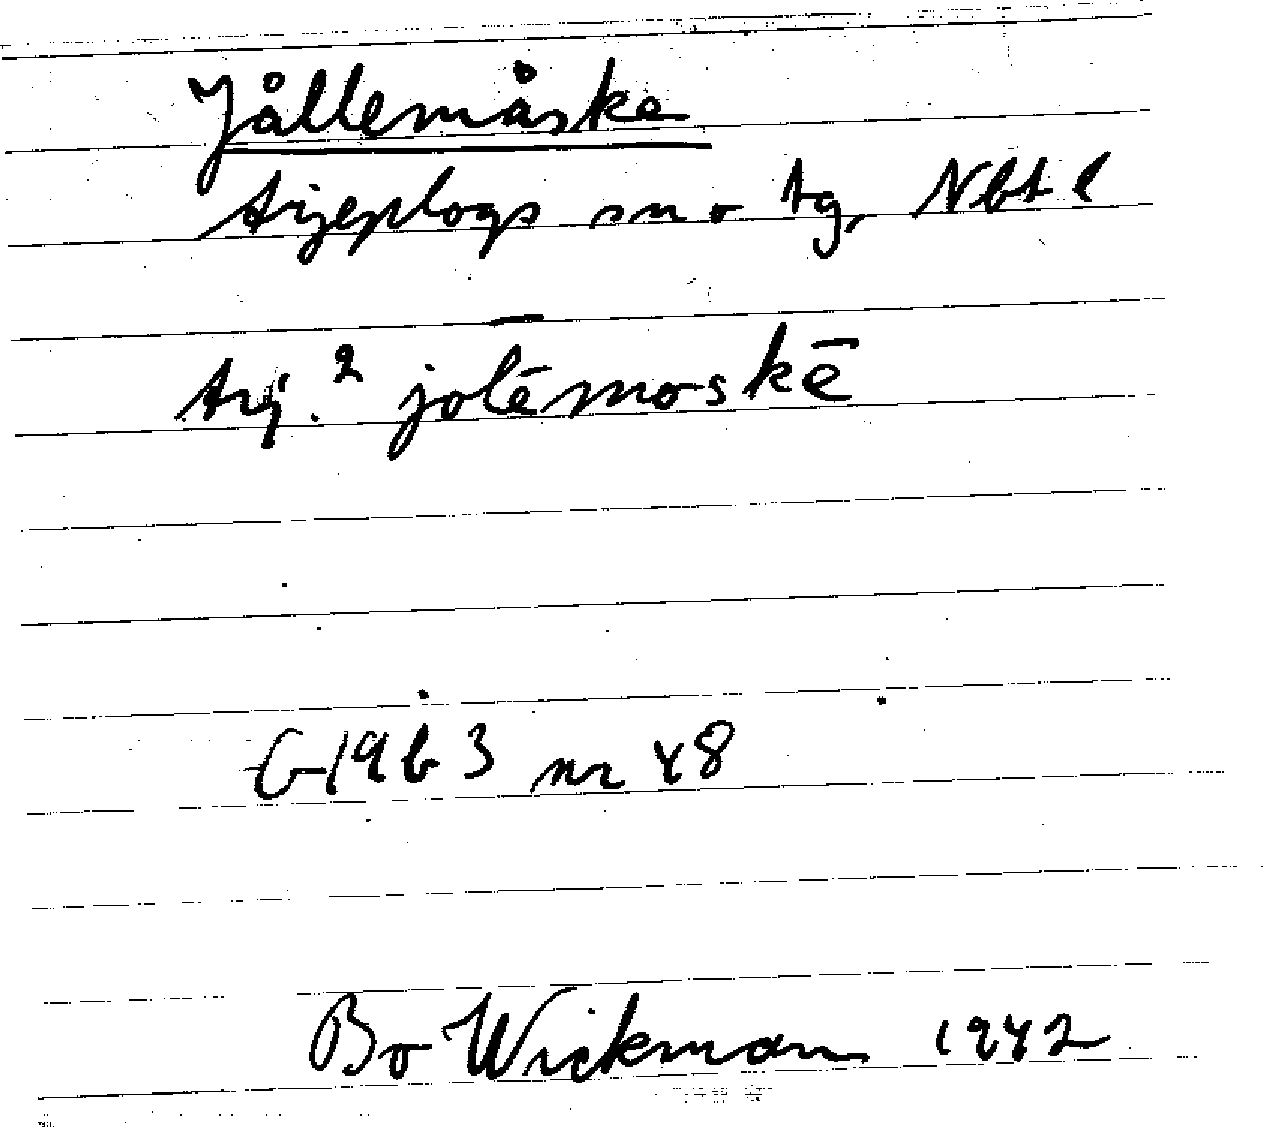 Jållemåske
Arjeplogs sn o tg, Nbt l
Arj.² jolēmoskē
G 19 b 3 nr 48
Bo Wickman 1942